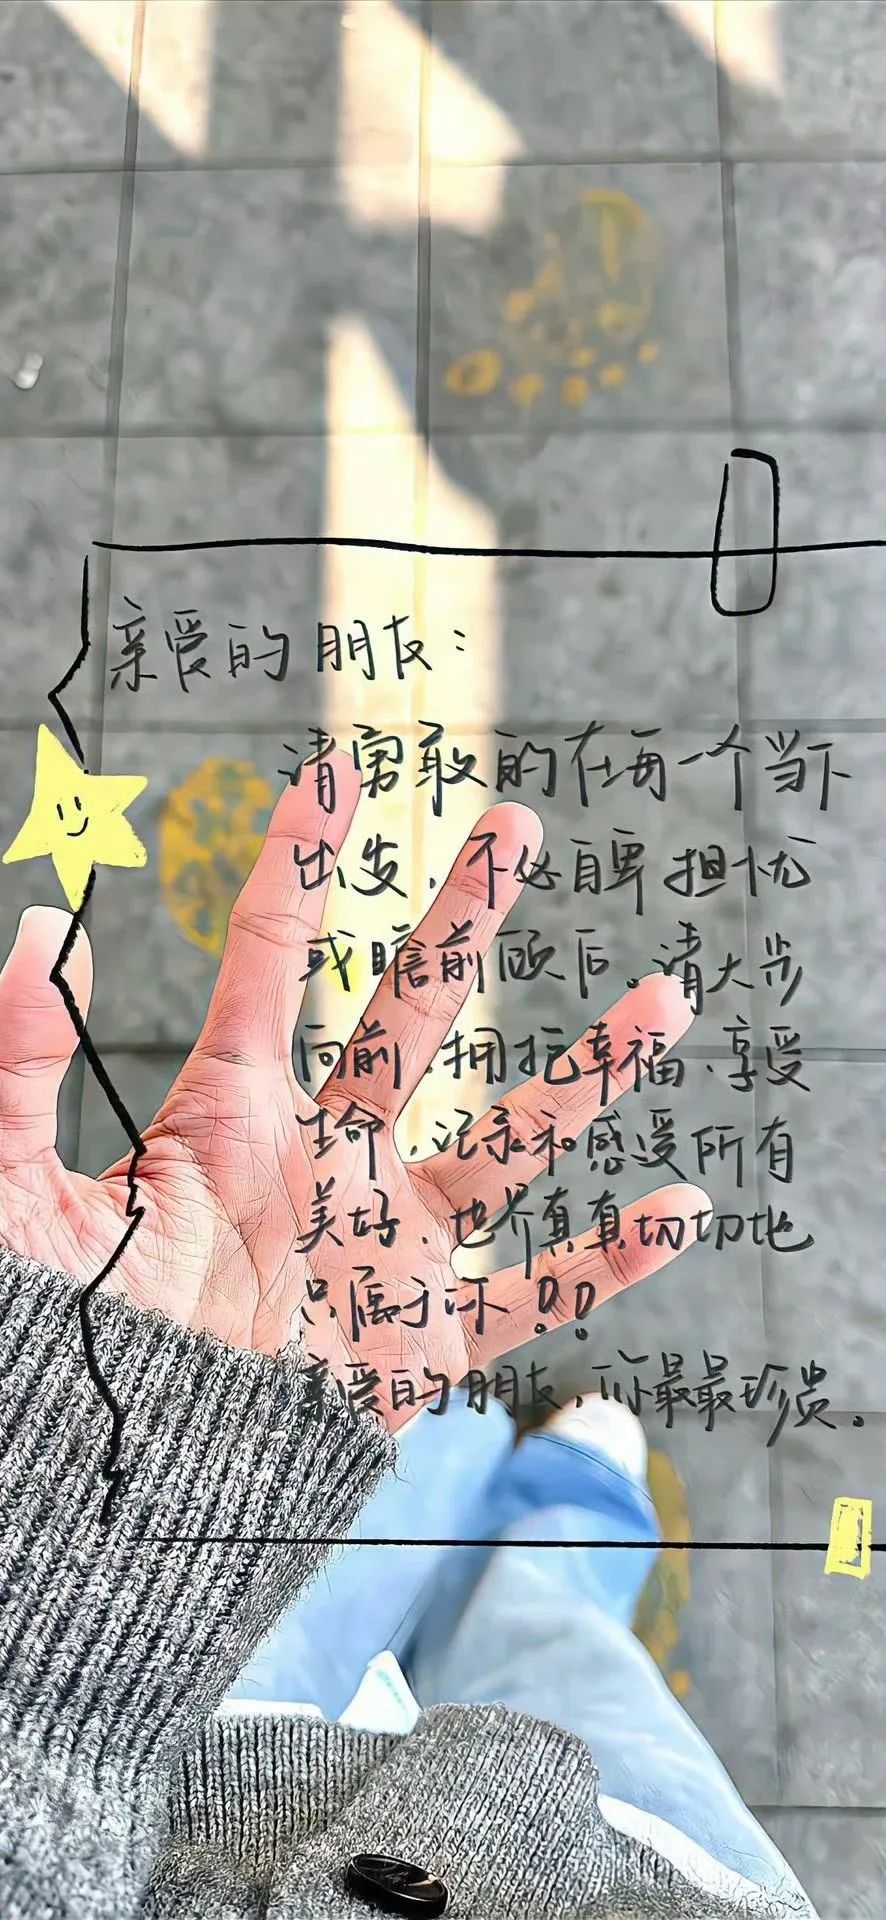 亲爱的朋友:
请勇敢的在每一个当下
出发,不必自卑担忧
或瞻前顾后。请大步
向前,拥抱幸福,享受
生命,记录和感受所有
美好,世界真真切切地
只属于你!!
亲爱的朋友,你最最珍贵。